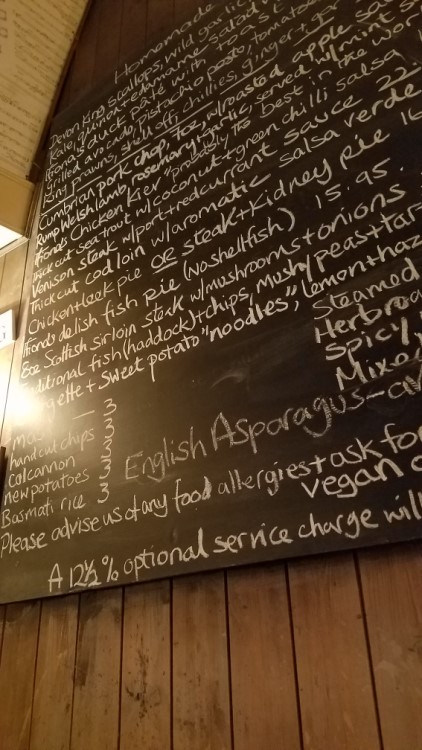 Homemade
Devon King scallops, wild garlic
Kale, quinoa + edamame salad
Ffiona's duck pâté with toast
Grilled avocado, pistachio pesto, tomato
King prawns, shell off, chillies, ginger + gar
Cumbrian pork chop, 7oz, w/roasted apple sau
Rump Welsh lamb, rosemary + garlic, served w/mint s
Ffiona's Chicken Kiev "probably the best in the wor
Thick cut sea trout w/coconut + green chilli salsa
Venison steak w/port + redcurrant sauce 22
Thick cut cod loin w/aromatic salsa verde
Chicken + leek pie OR steak + kidney pie 16
Ffiona's delish fish pie (no shellfish) 15.95
8oz Scottish sirloin steak w/mushrooms + onions
Traditional fish (haddock) + chips, mushy peas + tar
gette + sweet potato "noodles", lemon + haz
Steamed
Herbroa
Spicy
Mixe
mas — 3
hand cut chips 3
calcannon 3
new potatoes 3
Basmati rice 3
English Asparagus - av
Please advise us of any food allergies + ask for
vegan o
A 12½% optional service charge will